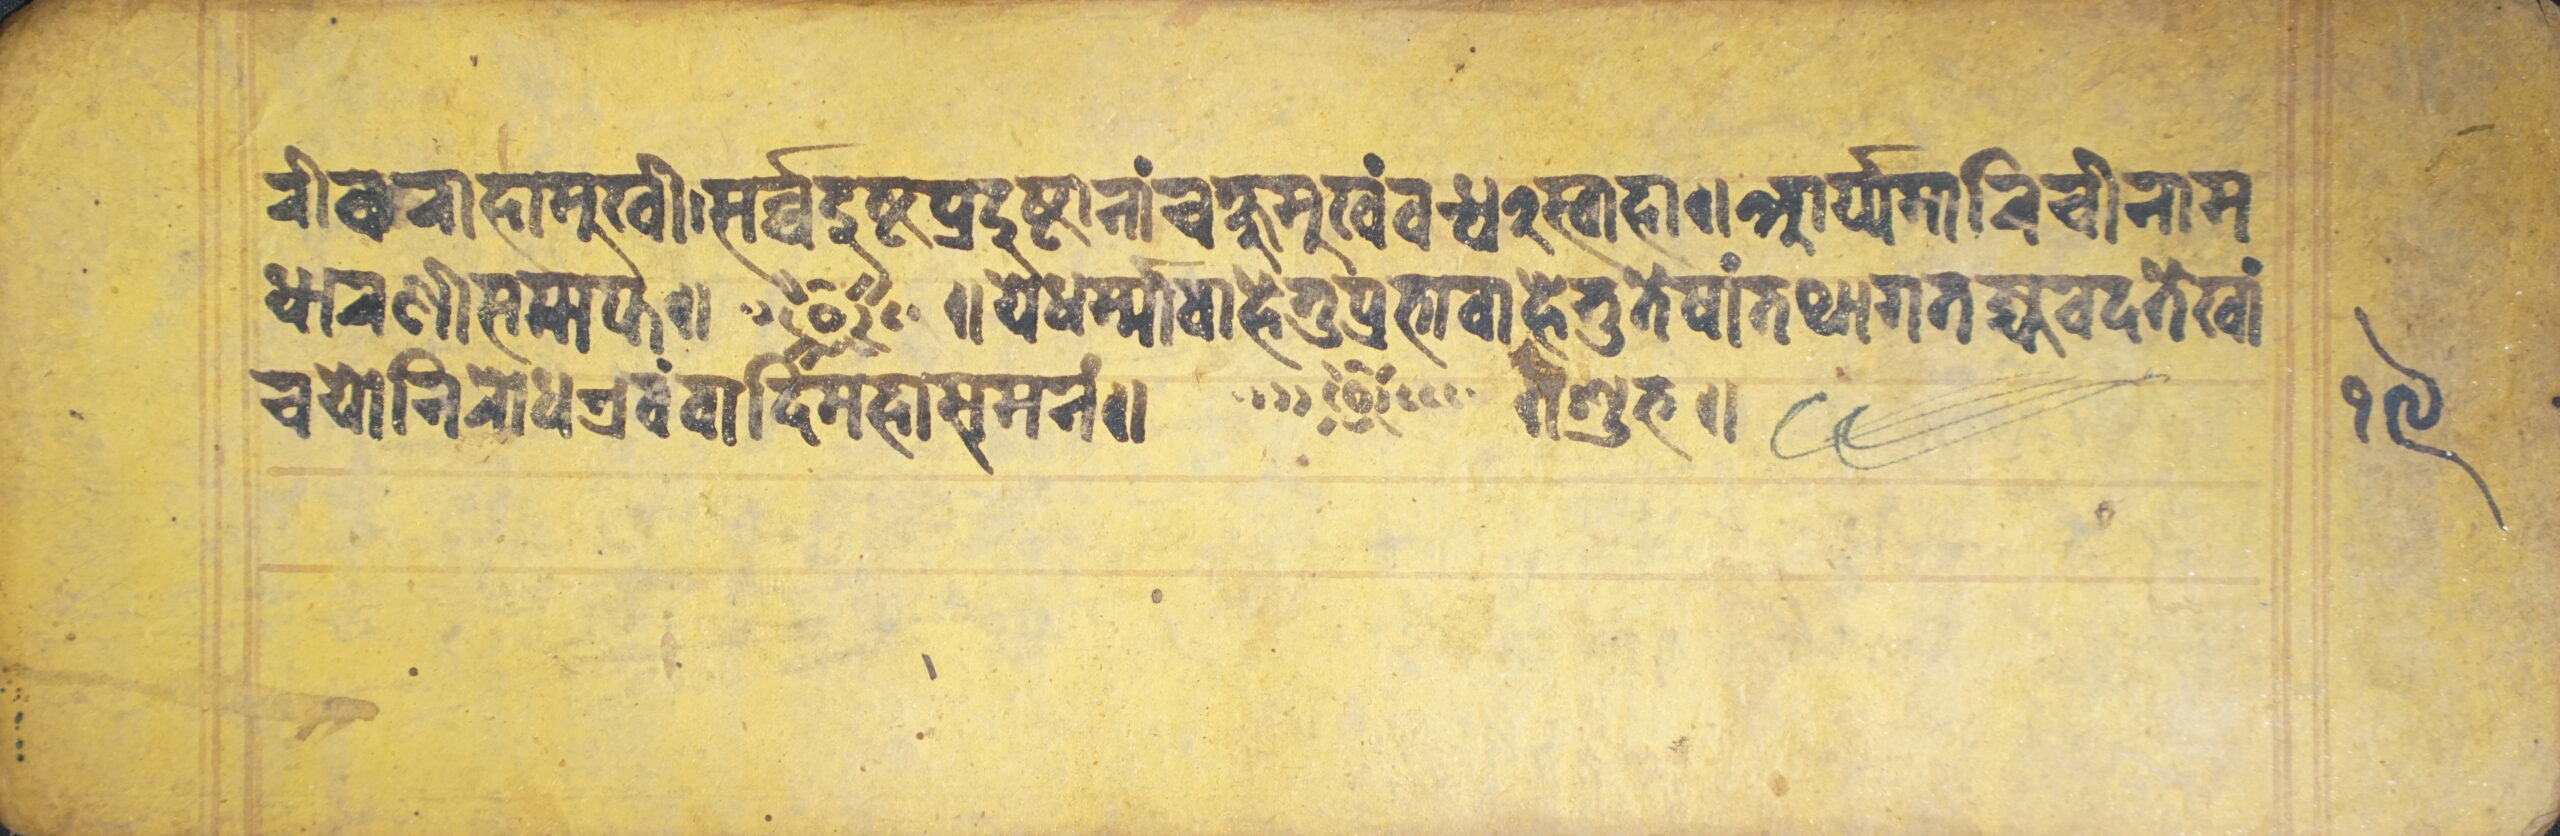 रीवाराहामुखी।सर्व्वदुष्टप्रदुष्टानांचक्षुमुखंवन्ध२स्वाहा॥आर्य्यमारिचीनाम
धारणीसमाप्त॥ ॥येधर्म्माधाहेतुप्रभावाहेतुतेषांतथागतह्यवदतेखां
चयोनिरोधएवंवादिमहासमनं॥ ॥शुभ॥
१९